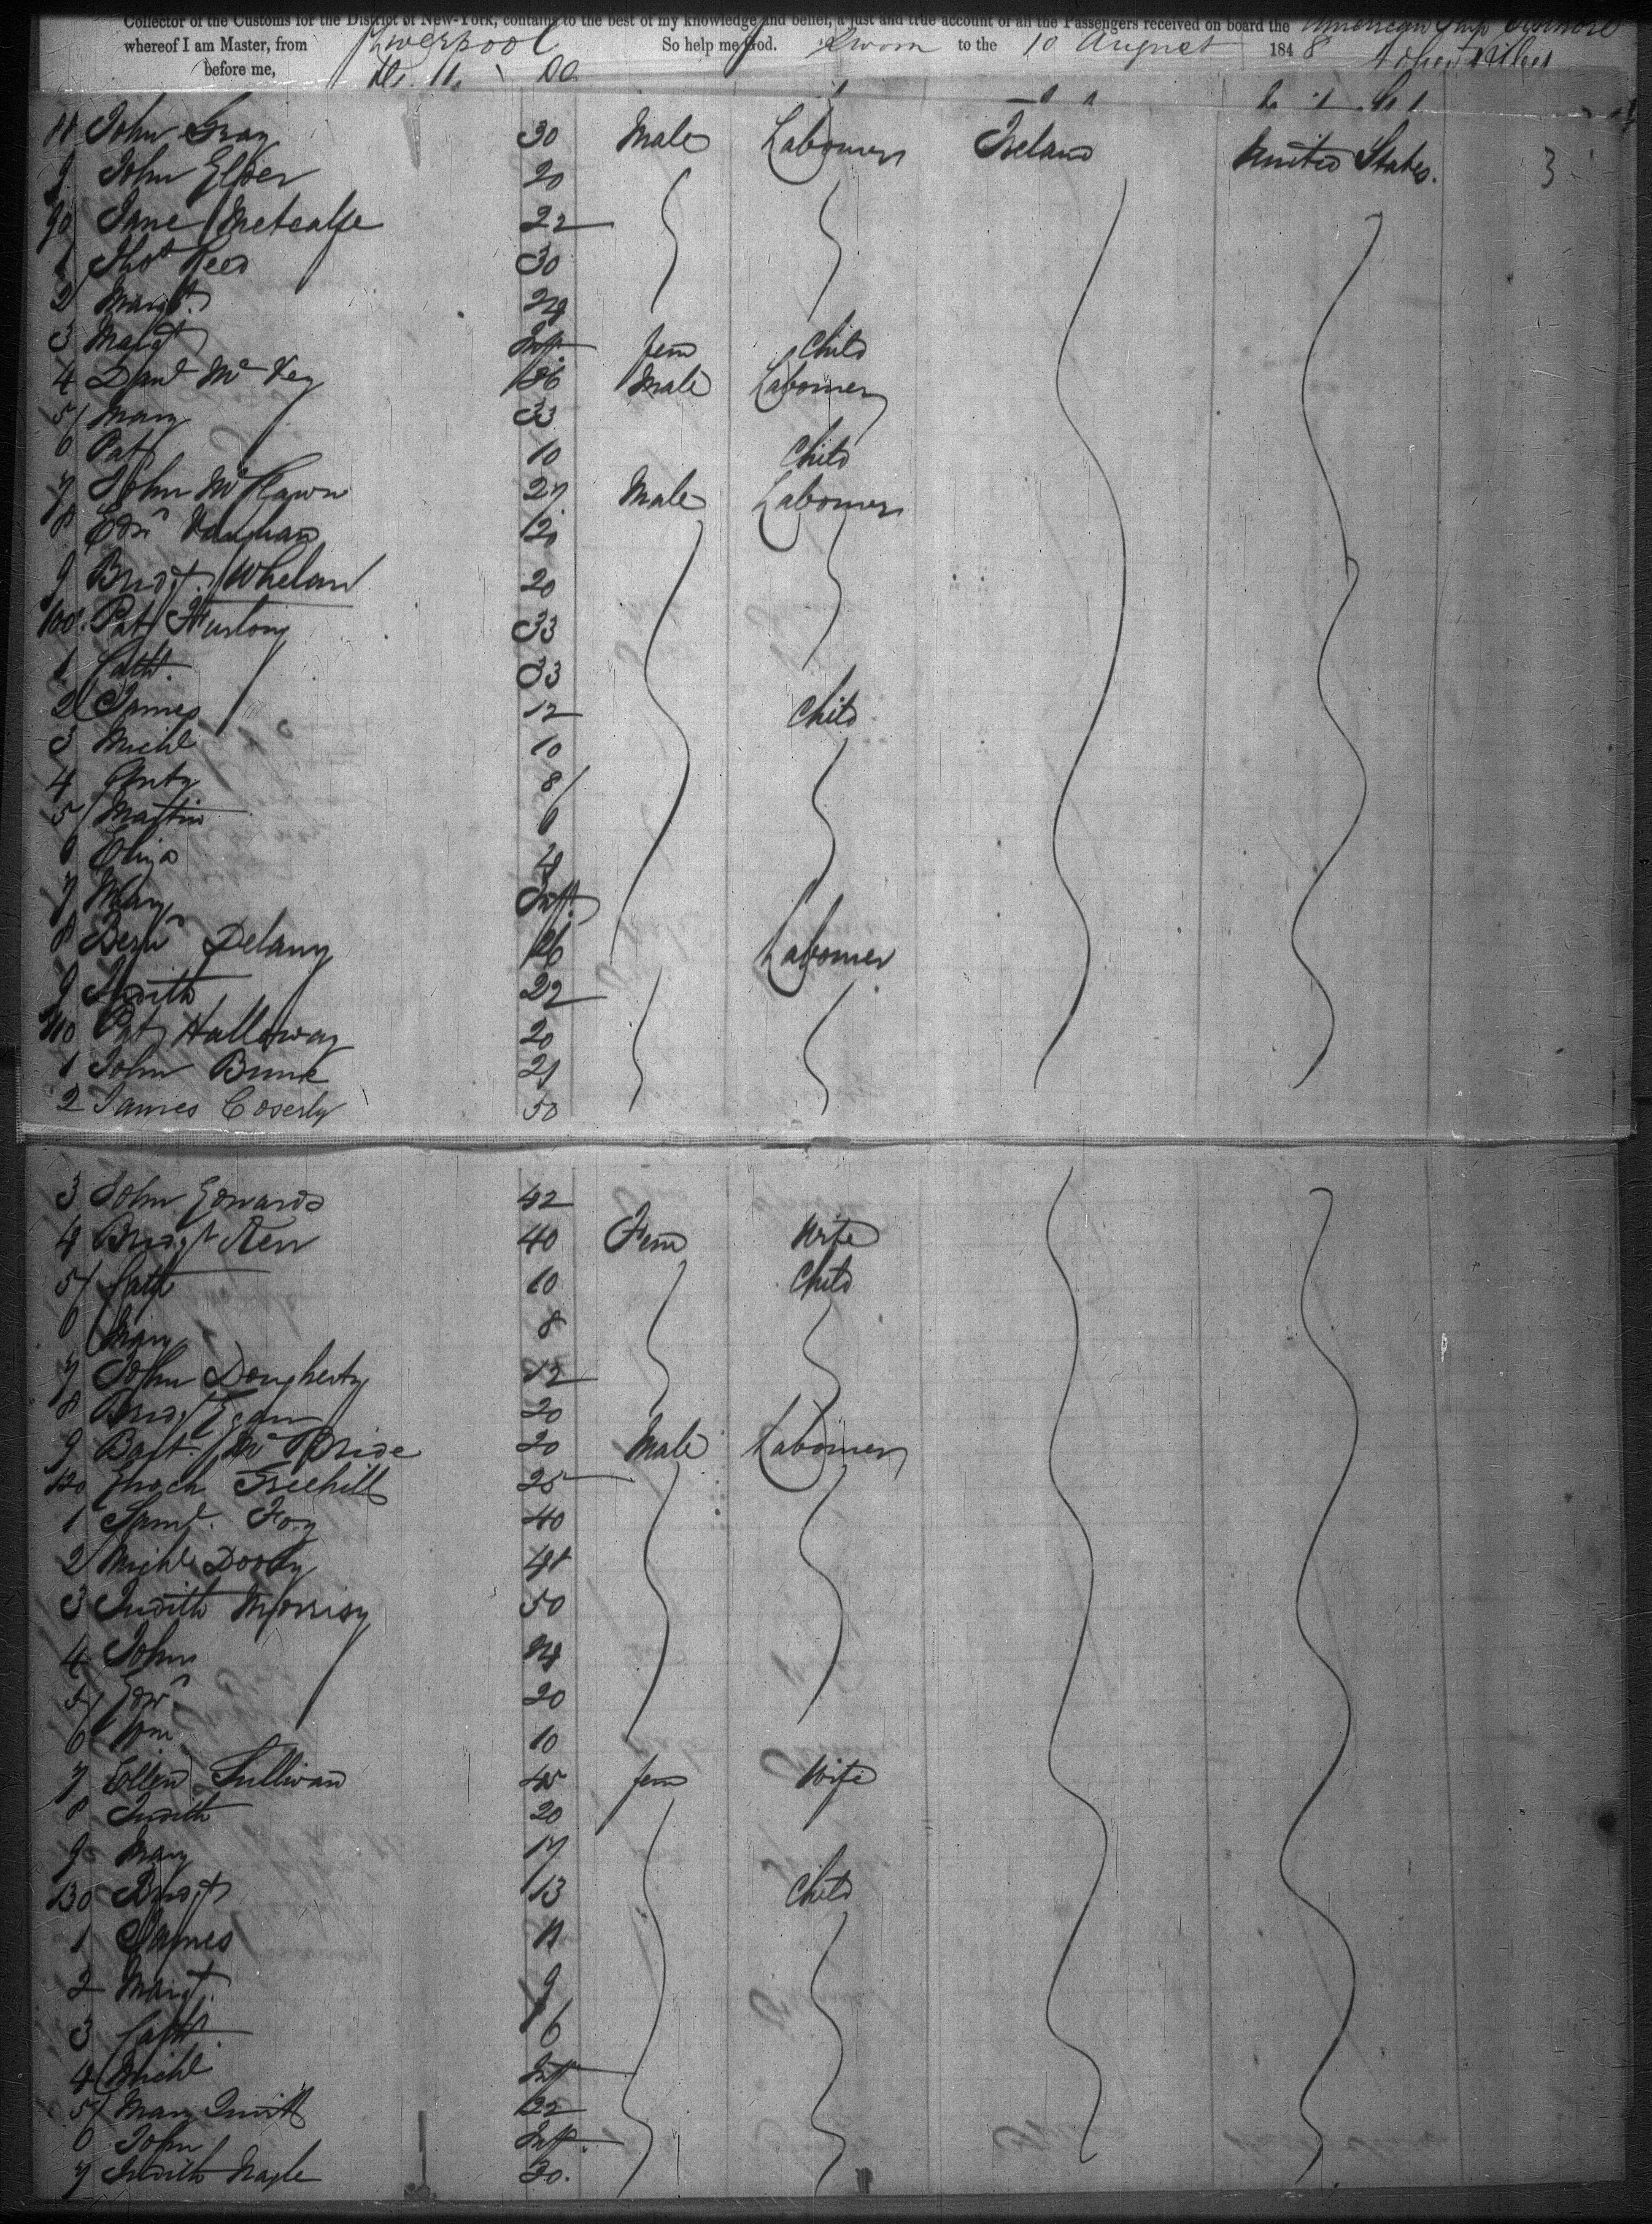 Collector of the Customs for the District of New-York, contains to the best of my knowledge and belief, a just and true account of all the Passengers received on board the American Ship
whereof I am Master, from Liverpool So help me God. Sworn to the 10 August 1848
before me,
John Gray 30 Male Labourer Ireland United States. 3
9 John Elder 20
90 Jane Metcalfe 22
1 Thos Reed 30
2 Margt. 24
3 Margt Inft. fem Child
4 Danl Mc Key 36 Male Labourer
5 Mary 33
6 Pat 10 Child
7 John Mc 27 Male Labourer
8 Edwd Vaughan 12
9 Bridgt. Whelan 20
100 Pat Furlong 33
1 Cath. 33
2 James 12 Child
3 Michl 10
4 Anty 8
5 Martin 6
6 Eliza 4
7 Mary Inft.
8 Bernd Delany 26 Labourer
9 Judith 22
110 Pat Halloway 20
1 John Bune 21
2 James Coserly 50
3 John Edwards 42
4 Bridgt Ken 40 Fem Wife
5 Cath 10 Child
6 Mary 8
7 John Dougherty 12
8 Bridgt Egan 20
9 Bart. Mc Bride 20 Male Labourer
120 Enoch Greehill 25
1 Saml. Foy 40
2 Michl Dooly 41
3 Judith Morrisy 50
4 John 24
5 Edwd 20
6 Wm 10
7 Ellen Sullivan 45 fem Wife
8 Judith 20
9 Mary 17
130 Bridgt 13 Child
1 James 11
2 Margt. 9
3 Cath. 6
4 Michl Inft
5 Mary 22
6 John Inft.
7 Judith Nagle 30.